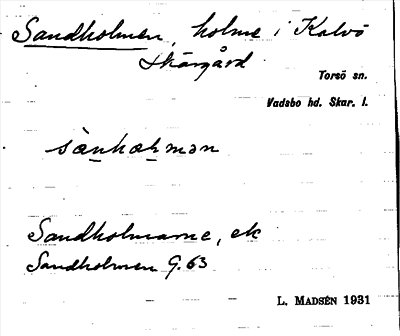 Sandholmen, holme i Kalvö
Skärgård
Torsö sn.
Vadsbo hd. Skar. l.
sànhɷɫmən
Sandholmarne, ek
Sandholmen G. 63
L. MADSÉN 1931